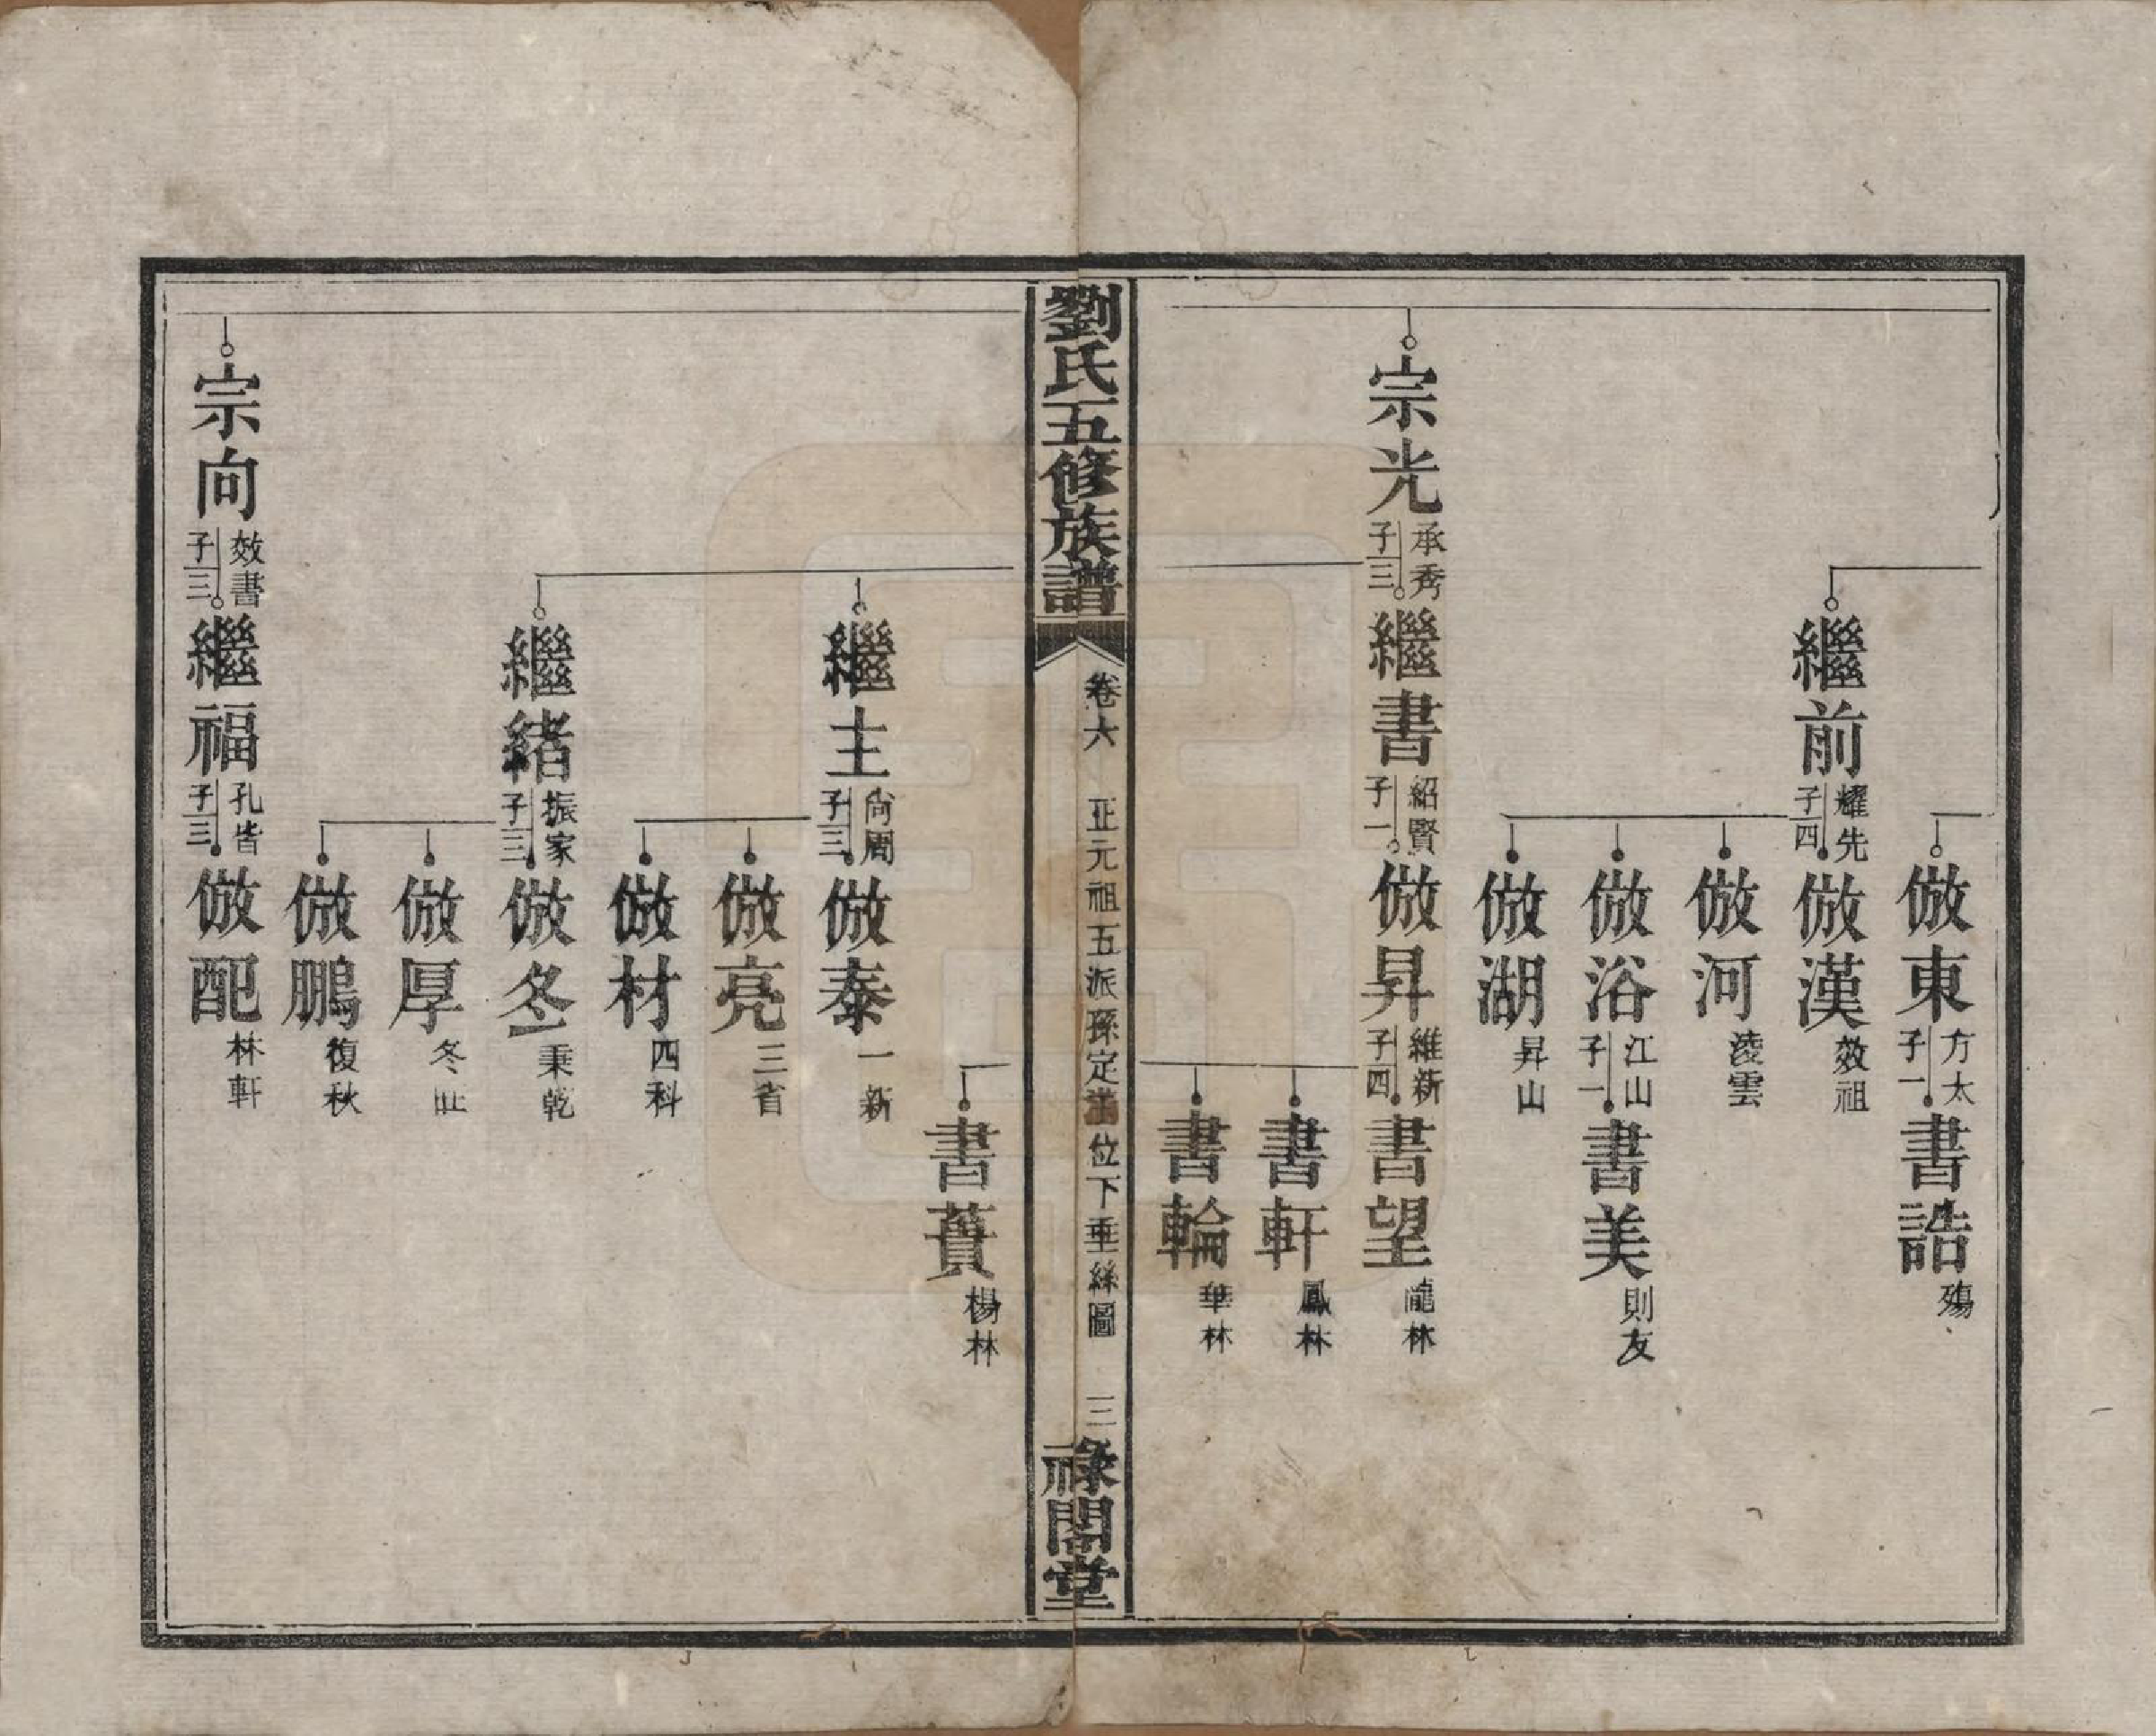 倣東 方太 子一
書誥 殤
繼前 耀先 子四
倣漢 效祖
倣河 淩雲
倣浴 江山 子一
書美 則友
倣湖 昇山
宗光 承秀 子三
繼書 紹賢 子一
倣昇 維新 子四
書望 龍林
書軒 鳳林
書輪 華林
劉氏五修族譜
卷六 正元祖五派孫定滿位下垂絲圖 三
祿閣堂
書蕡 楊林
繼主 尚周 子三
倣泰 一新
倣亮 三省
倣材 四科
繼緒 振家 子三
倣冬 秉乾
倣厚 冬
倣鵬 復秋
宗向 效書 子三
繼福 孔皆 子三
倣配 林軒